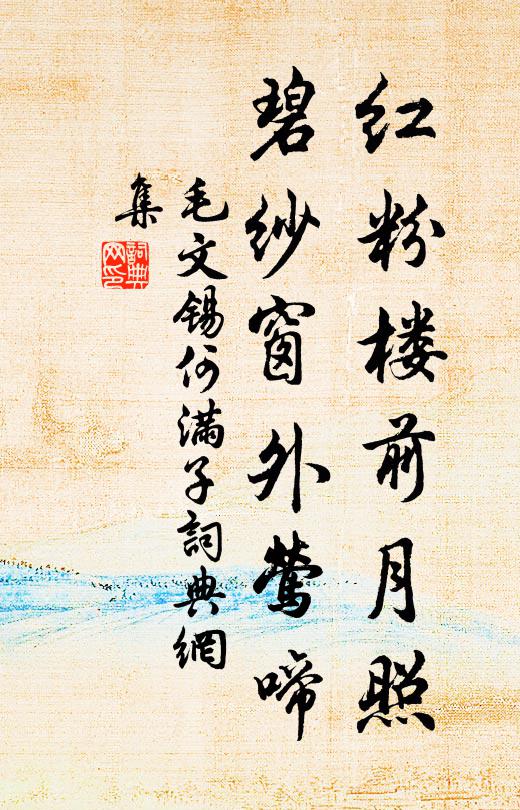 红粉楼前月照
碧纱窗外莺啼
毛文锡何满子詞典網
集
詞典
网印